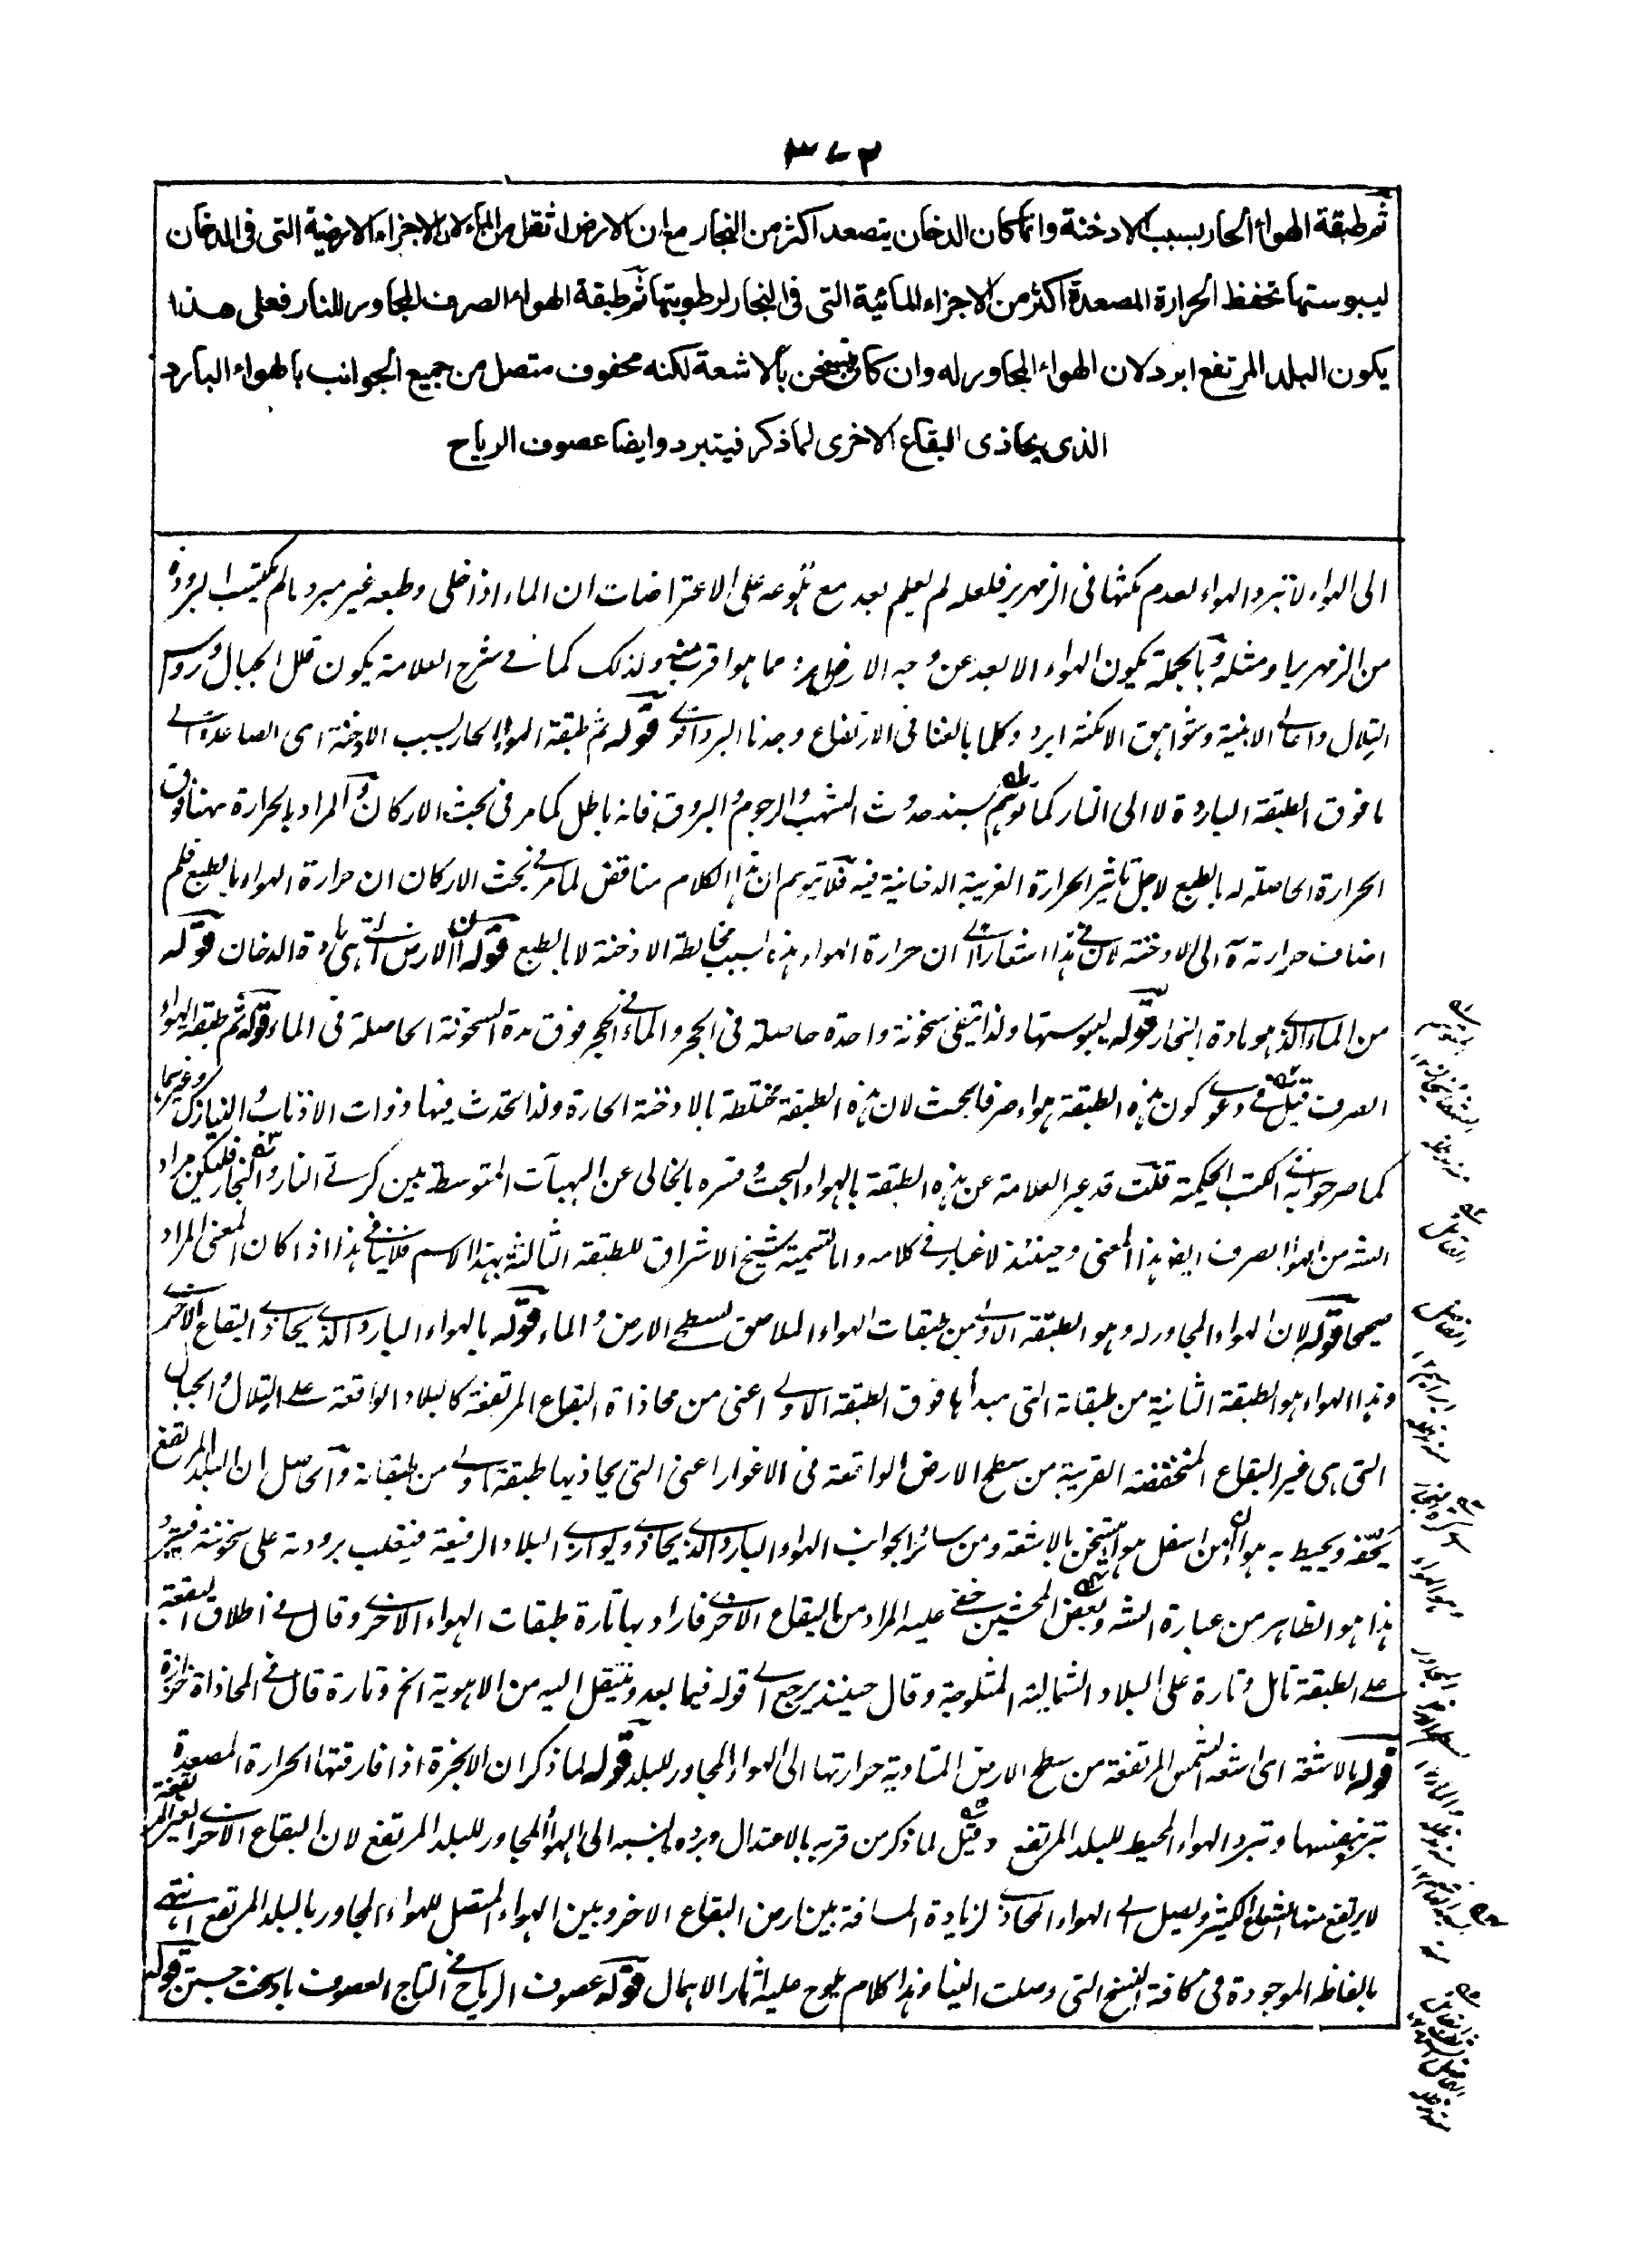 ٣٧٢
ثم طبقة الهواء الحار بسبب الادخنة وانما كان الدخان يتصعد اكثر من البخار مع ان الارض اثقل من الماء لان الاجزاء الارضية التى فى الدخان
ليبوستها تحفظ الحرارة المصعدة اكثر من الاجزاء المائية التى فى البخار لرطوبتها ثم طبقة الهواء الصرف المجاور للنار فعلى هذا
يكون البلد المرتفع ابرد لان الهواء المجاور له وان كان يتسخن بالاشعة لكنه محفوف متصل من جميع الجوانب بالهواء البارد
الذى يحاذى البقاع الاخرى لما ذكر فيتبرد وايضا عصوف الرياح
الى الهواء لا تبرد الهواء لعدم مكثها فى الزمهرير فلعله لم يعلم بعد مع تنوعه على الاعتراضات ان الماء اذا خلى وطبعه غير مبرد ما لم يكتسب البرودة
من الزمهرير يا ومثله وبالجملة يكون الهواء الابعد عن وجه الارض ابرد مما هو اقرب منه ولذلك كما فى شرح العلامة يكون قلل الجبال ورؤس
التلال واعالى الابنية وشواهق الامكنة ابرد وكلما بالغنا فى الارتفاع وجدنا البرد اقوى قوله ثم طبقة الهواء الحار بسبب الادخنة اى الصاعدة الى
ما فوق الطبقة الباردة لا الى النار كما توهم بسند حدوث الشهب والرجوم والبروق فانه باطل كما مر فى بحث الاركان والمراد بالحرارة ههنا فوق
الحرارة الحاصلة له بالطبع لاجل تاثير الحرارة الغريبة الدخانية فيه فلا يتوهم ان هذا الكلام مناقض لما مر فى بحث الاركان ان حرارة الهواء بالطبع فلم
اضاف حرارته الى الادخنة لان فى هذا اشعارا الى ان حرارة الهواء هذه بسبب مخالطة الادخنة لا بالطبع قوله ان الارض التى هى مادة الدخان قوله
من الماء الذى هو مادة البخار قوله ليبوستها ولذا تبقى سخونة واحدة حاصلة فى الحجر والماء فى الحجر فوق مدة السخونة الحاصلة فى الماء قوله ثم طبقة الهواء
الصرف قيل فى دعوى كون هذه الطبقة هواء صرفا بحث لان هذه الطبقة مختلطة بالادخنة الحارة ولذا تحدث فيها ذوات الاذناب والنيازك وغيرها
كما صرحوا به فى الكتب الحكمية قلت قد عبر العلامة عن هذه الطبقة بالهواء البحت وفسره بالخالى عن الهبآت المتوسطة بين كرتى النار والبخار فليكن مراد
الشه من الهواء الصرف ايضا هذا المعنى وحينئذ لا غبار فى كلامه واما تسمية شيخ الاشراق للطبقة الثالثة بهذا الاسم فلا ينافى هذا اذا كان المعنى المراد
صحيحا قوله لان الهواء المجاور له وهو الطبقة الاولى من طبقات الهواء الملاصق لسطح الارض والماء قوله بالهواء البارد الذى يحاذى البقاع الاخرى
وهذا الهواء هو الطبقة الثانية من طبقاته التى مبدأها فوق الطبقة الاولى اعنى من محاذاة البقاع المرتفعة كالبلاد الواقعة على التلال والجبال
التى هى غير البقاع المنخفضة القريبة من سطح الارض الواقعة فى الاغوار اعنى التى يحاذيها طبقة اولى من طبقاته والحاصل ان البلد المرتفع
يحفه ويحيط به هواآن من اسفل هواء يتسخن بالاشعة ومن سائر الجوانب الهواء البارد الذى يحاذى ويوازى البلاد الرفيعة فيغلب برودته على سخونته فيتبرد
هذا هو الظاهر من عبارة الشه وبعض المحشين خفى عليه المراد من البقاع الاخرى فاراد بها تارة طبقات الهواء الاخرى وقال فى اطلاق البقعة
على الطبقة تامل وتارة على البلاد الشمالية المثلوجة وقال حينئذ يرجع الى قوله فيما بعد وينتقل اليه من الاهوية الخ وتارة قال فى المحاذاة حزازة
قوله بالاشعة اى اشعة الشمس المرتفعة من سطح الارض المتادية حرارتها الى الهواء المجاور للبلد قوله لما ذكر ان الابخرة اذا فارقتها الحرارة المصعدة
تبرد بنفسها وتبرد الهواء المحيط للبلد المرتفع وقيل لما ذكر من قربه بالاعتدال وبرده بالنسبة الى الهواء المجاور للبلد المرتفع لان البقاع الاخرى الغير المرتفعة
لا يرتفع منها الشعاع الكثير ويصل الى الهواء المحاذى لزيادة المسافة بين ارض البقاع الاخر وبين الهواء المتصل للهواء المجاور بالبلد المرتفع انتهى
بالفاظه الموجودة فى كافة النسخ التى وصلت الينا وهذا كلام يلوح عليه اثار الاهمال قوله عصوف الرياح فى التاج العصوف باد سخت جستن قوله